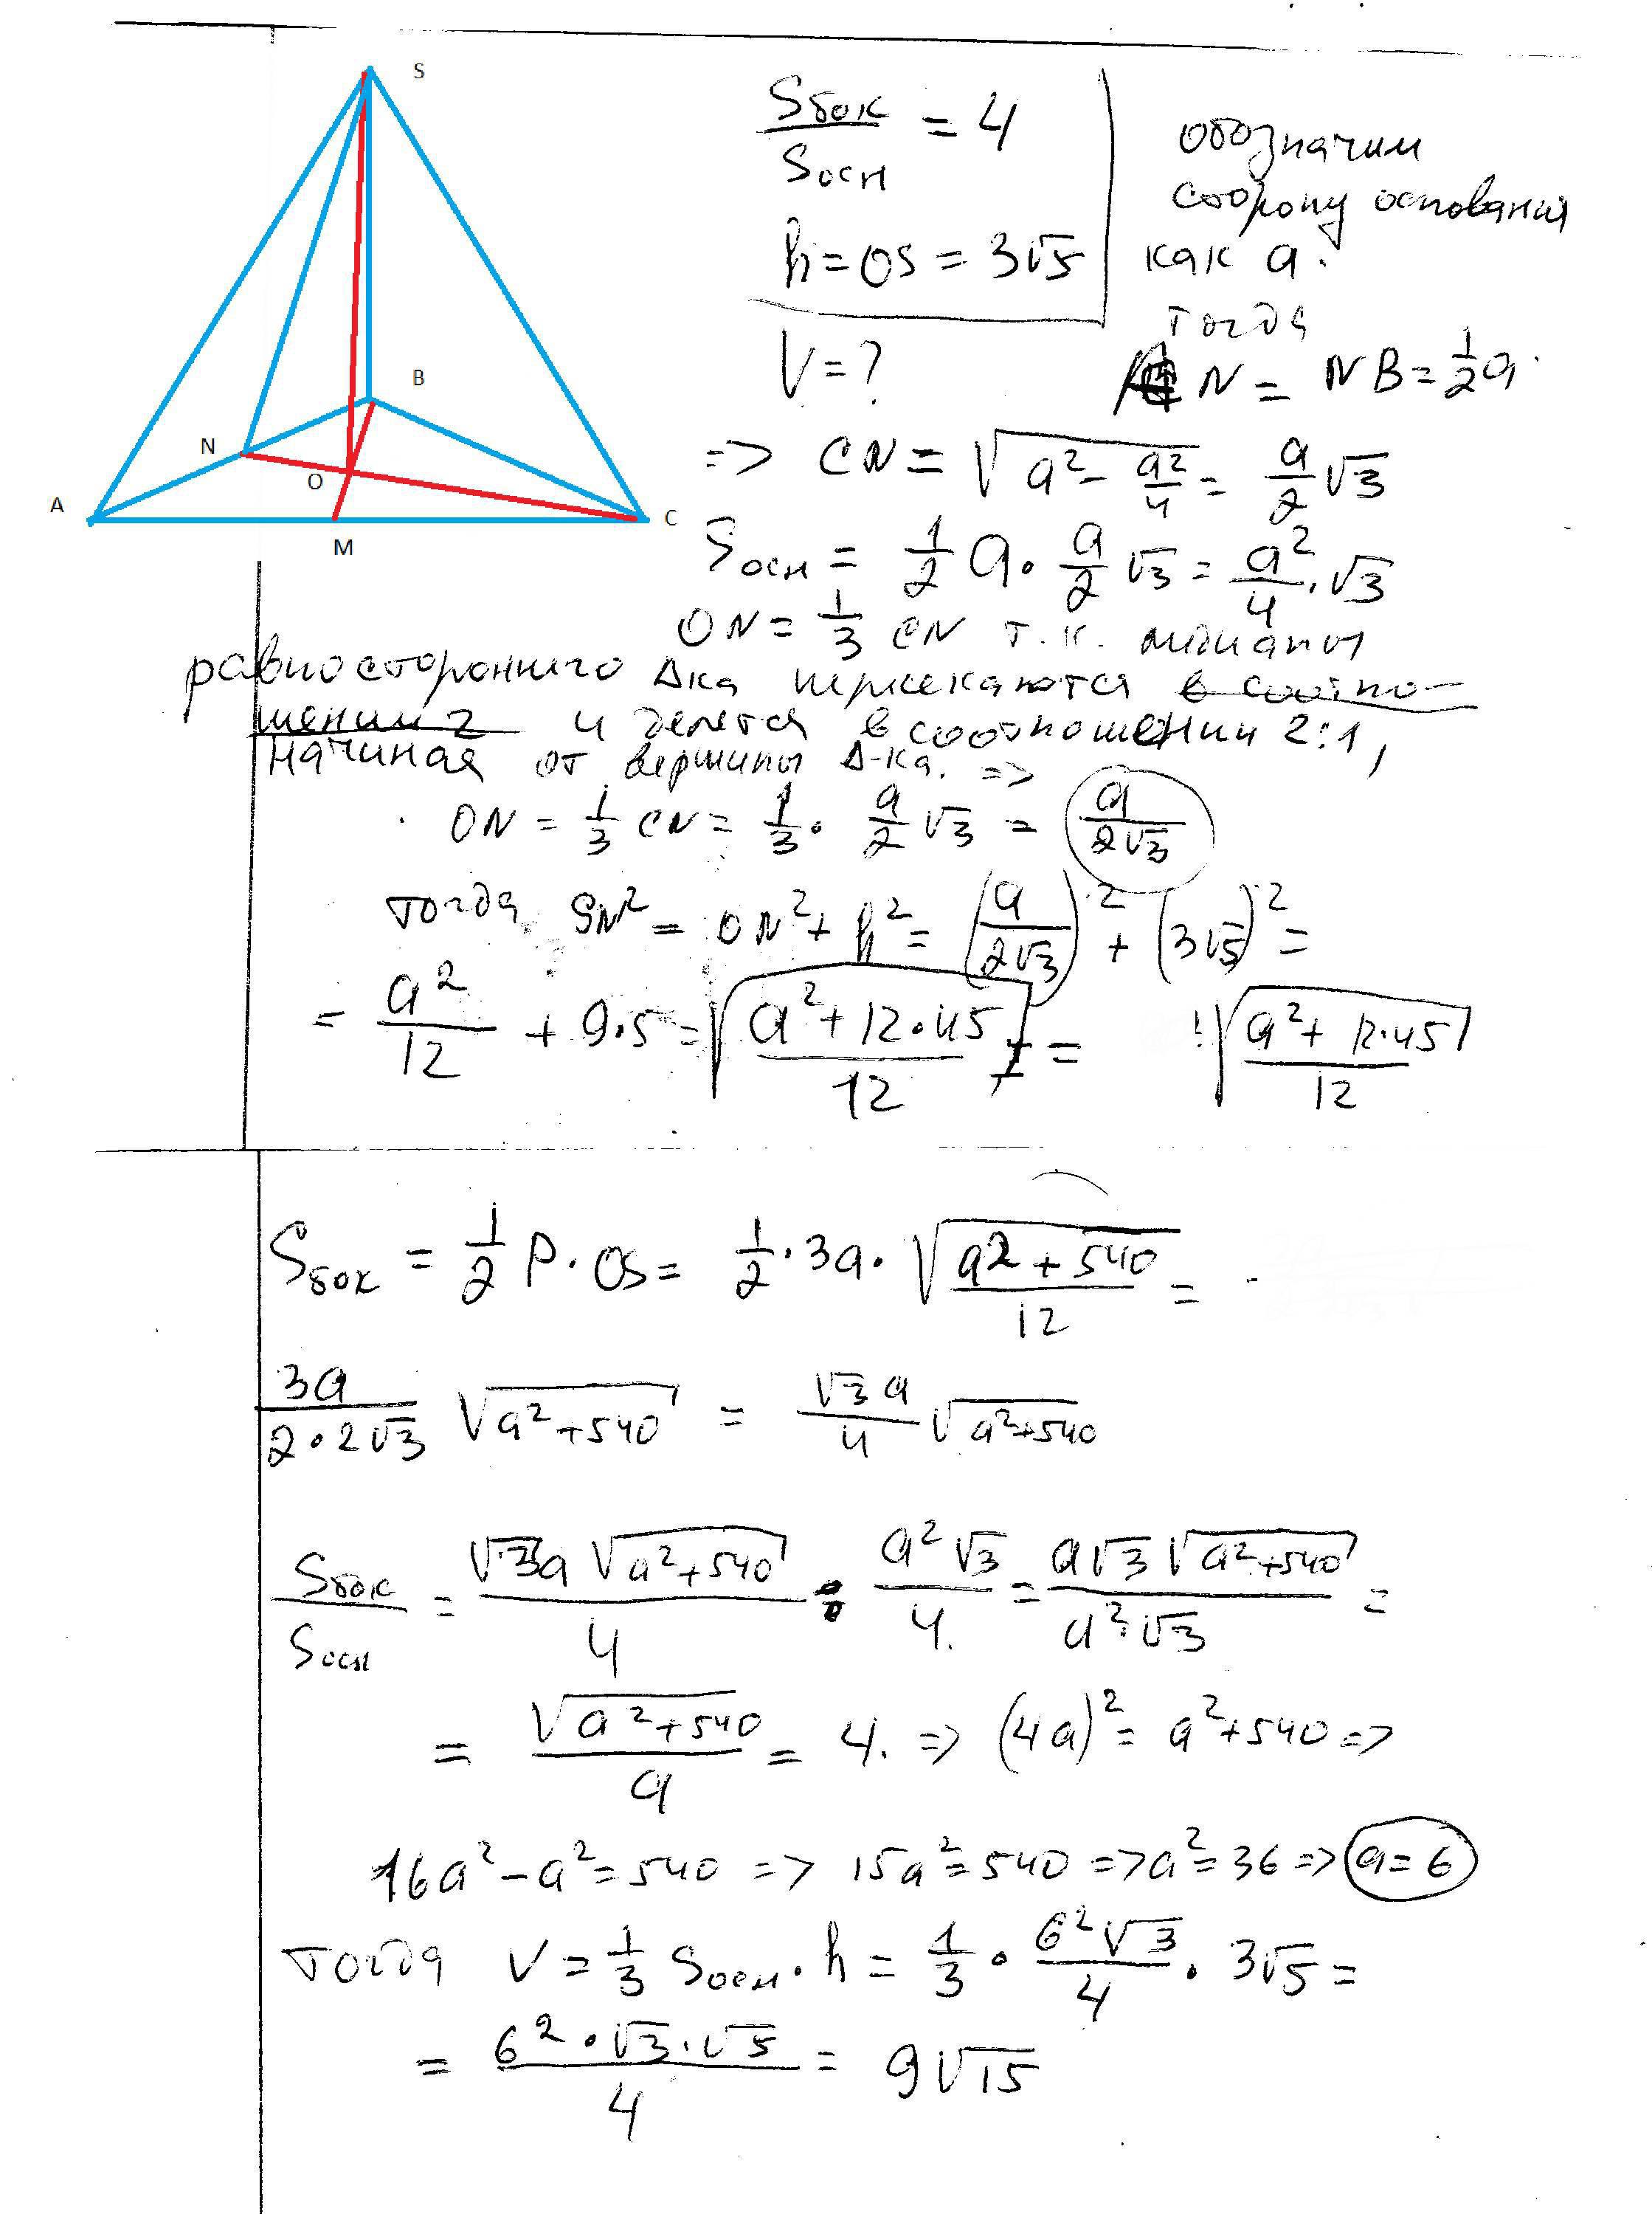 S
B
N
O
A
C
M
Sбок/Sосн = 4
h = OS = 3√5
V = ?
обозначим
сторону основания
как a.
тогда
N = NB = 1/2 a.
=> CN = √(a² - a²/4) = a/2 √3
Sосн = 1/2 a · a/2 √3 = a²/4 · √3
ON = 1/3 CN т.к. медианы
равностороннего Δка пересекаются в соотно-
шении 2 и делятся в соотношении 2:1,
начиная от вершины Δ-ка. =>
ON = 1/3 CN = 1/3 · a/2 √3 = a/(2√3)
тогда SN² = ON² + h² = (a/(2√3))² + (3√5)² =
= a²/12 + 9·5 = √((a² + 12·45)/12) = √((a² + 12·45)/12)
Sбок = 1/2 P · OS = 1/2 · 3a · √((a² + 540)/12) =
3a/(2·2√3) √(a² + 540) = √3 a/4 √(a² + 540)
Sбок/Sосн = √3a √(a² + 540)/4 : a²√3/4 = a√3 √(a² + 540)/(a²·√3) =
= √(a² + 540)/a = 4. => (4a)² = a² + 540 =>
16a² - a² = 540 => 15a² = 540 => a² = 36 => a = 6
тогда V = 1/3 Sосн · h = 1/3 · 6²√3/4 · 3√5 =
= 6² · √3 · √5/4 = 9√15